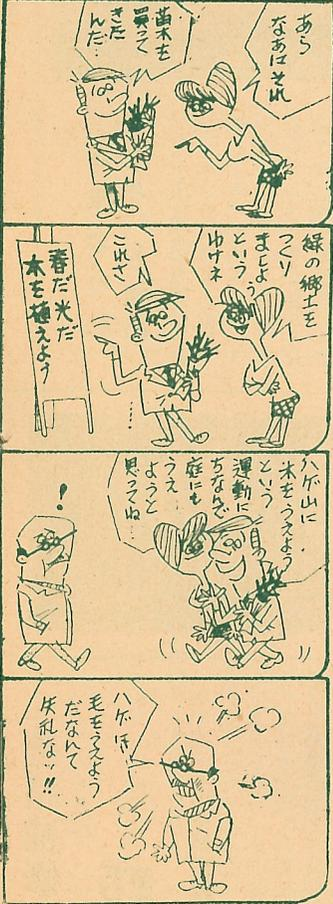 あら
なあにそれ
苗木を
買って
きた
んだ…
緑の郷土を
つくり
ましよう
という
わけネ
これさ
春だ光だ
木を植えよう
ハゲ山に
木をうえよう
という
運動に
ちなんで
庭にも
うえ
ようと
思ってね…
!
ハゲに
毛をうえよう
だなんて
失礼なッ!!